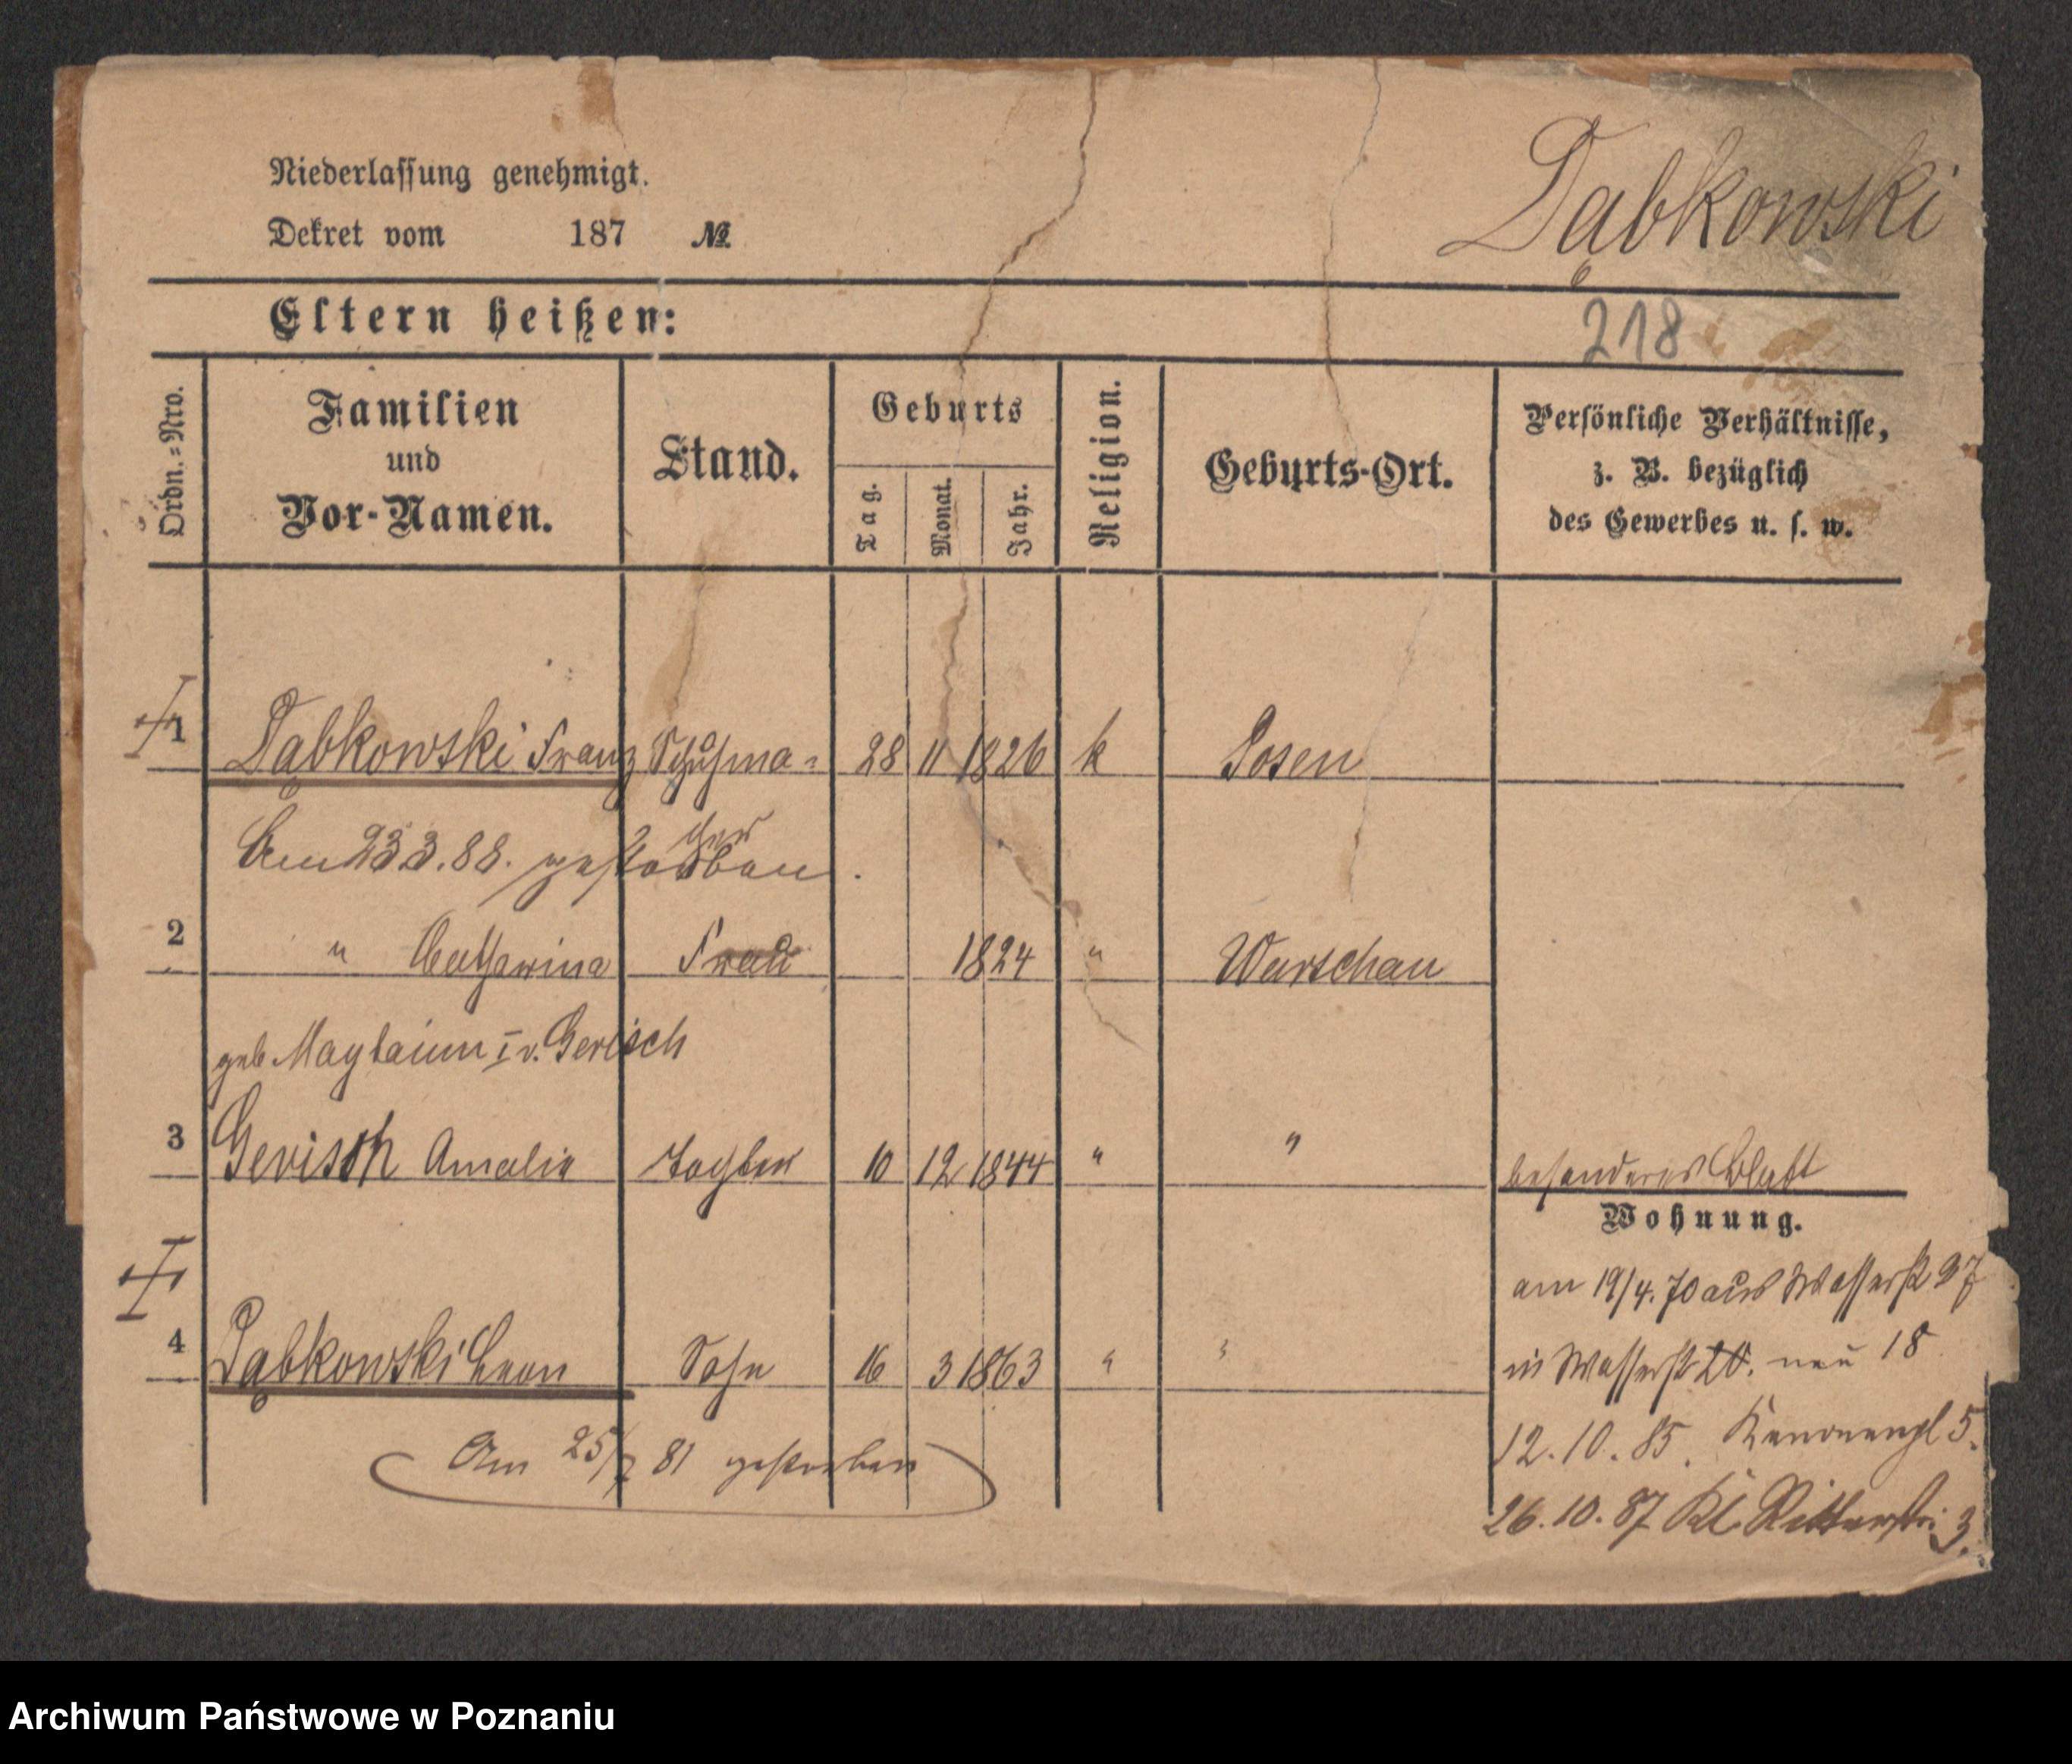 Niederlassung genehmigt.
Dekret vom 187 №
Dąbkowski
218
Eltern heißen:
Ordn.-Nro.
Familien
und
Vor-Namen.
Stand.
Geburts
Tag.
Monat.
Jahr.
Religion.
Geburts-Ort.
Persönliche Verhältnisse,
z. B. bezüglich
des Gewerbes u. s. w.
1 Dąbkowski Franz Schuhma= 28 11 1826 k Posen
cher
Am 23 3. 88. gestorben.
2 " Catharina Frau 1824 " Warschau
geb I v. Gerisch
3 Gerisch Amalie Tochter 10 12 1844 " " besonderes Blatt
Wohnung.
am 19/4. 70 aus Wasserst 27
4 Dąbkowski Leon Sohn 16 3 1863 " "
in Wasserst 20. neu 18
12. 10. 85. 5.
Am 25/7 81 gestorben
26. 10. 87 Kl. Ritterstr. 3.
Archiwum Państwowe w Poznaniu